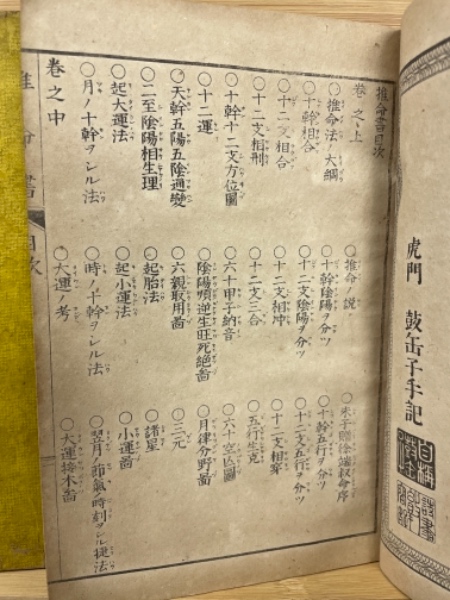 虎門 鼓缶子手記
推命書目次
巻之上
○推命ノ說 ○朱子贈徐端叔命序
○推命法ノ大綱 ○十幹陰陽ヲ分ツ ○十幹五行ヲ分ツ
○十幹相合 ○十二支陰陽ヲ分ツ ○十二支五行ヲ分ツ
○十二支相合 ○十二支相冲 ○十二支相穿
○十二支相刑 ○十二支三合 ○五行生克
○十幹十二支方位圖 ○六十甲子納音 ○六十空亾圖
○十二運 ○陰陽順逆生旺死絶啚 ○月律分野啚
○天幹五陽五陰通變 ○六親取用啚 ○三元
○二至陰陽相生理 ○起胎法 ○諸星
○起大運法 ○起小運法 ○小運啚
○月ノ十幹ヲシル法 ○時ノ十干ヲシル法 ○翌月ノ節氣時刻ヲシル捷法
巻之中 ○大運ノ考 ○大運接木啚
推命書 目次